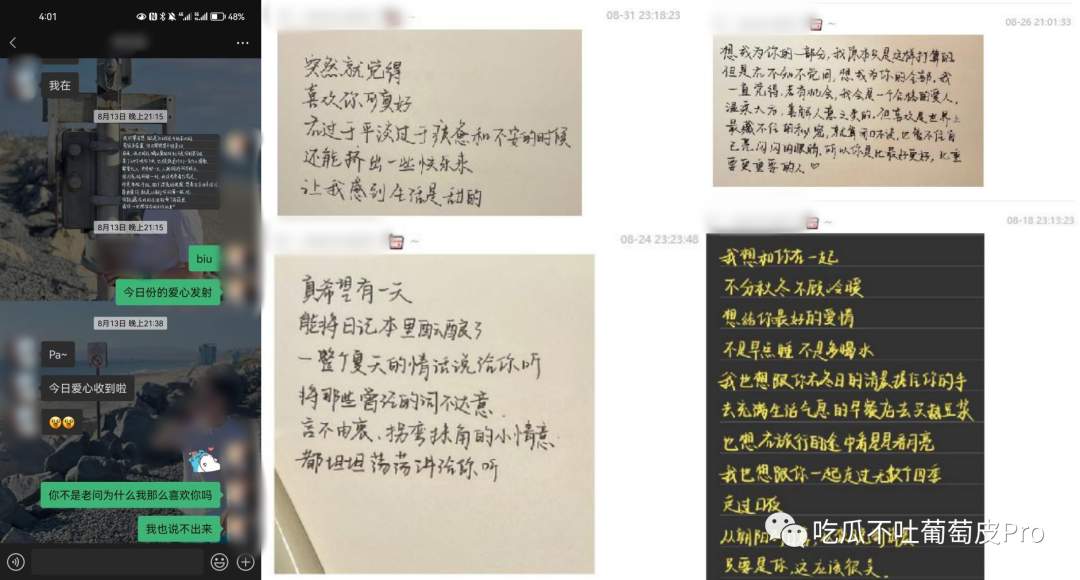 4:01
48%
我在
8月13日 晚上21:15
8月13日 晚上21:15
biu
今日份的爱心发射
8月13日 晚上21:38
Pa~
今日爱心收到啦
你不是老问为什么我那么喜欢你吗
我也说不出来
~
08-31 23:18:23
突然就觉得
喜欢你可真好
在过于平淡过于疲惫和不安的时候
还能挤出一些快乐来
让我感到生活是甜的
~
08-24 23:23:48
真希望有一天
能将日记本里酝酿了
一整个夏天的情话说给你听
将那些曾经的词不达意
言不由衷、拐弯抹角的小情意
都坦坦荡荡讲给你听
~
08-26 21:01:33
想成为你的一部分，我原本只是这样打算的
但是在不知不觉间，想成为你的全部。我
一直觉得，若有机会，我会是一个合格的爱人，
温柔大方，善解人意之类的。但喜欢是世界上
最藏不住的秘密，就算闭口不说，也管不住自
己亮闪闪的眼睛。所以你是比最好更好，比重
要更重要的人♡
~
08-18 23:13:23
我想和你在一起
不分秋冬 不顾冷暖
想给你最好的爱情
不是早点睡 不是多喝水
我也想跟你在冬日的清晨握住你的手
去充满生活气息的早餐店去买热豆浆
也想在旅行的途中看星星看月亮
我也想跟你一起走过无数个四季
走过日夜
从朝阳
只要是你，这应该很美。
吃瓜不吐葡萄皮Pro